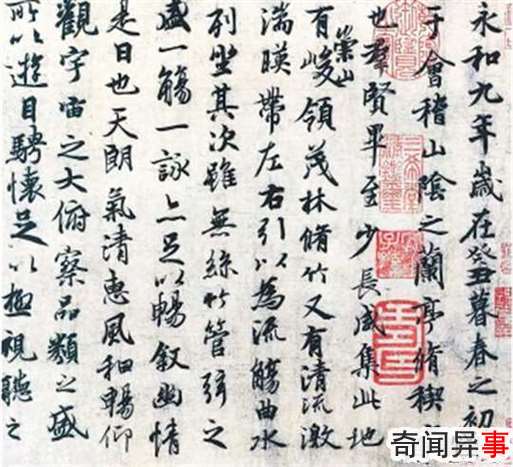 永和九年歲在癸丑暮春之初
于會稽山陰之蘭亭脩禊
也羣賢畢至少長咸集此地
崇山
有峻領茂林脩竹又有清流激
湍暎帶左右引以為流觴曲水
列坐其次雖無絲竹管弦之
盛一觴一詠亦足以暢敘幽情
是日也天朗氣清惠風和暢仰
觀宇宙之大俯察品類之盛
所以遊目騁懷足以極視聽之
三希堂精鑑璽
宜子孫
奇闻异事